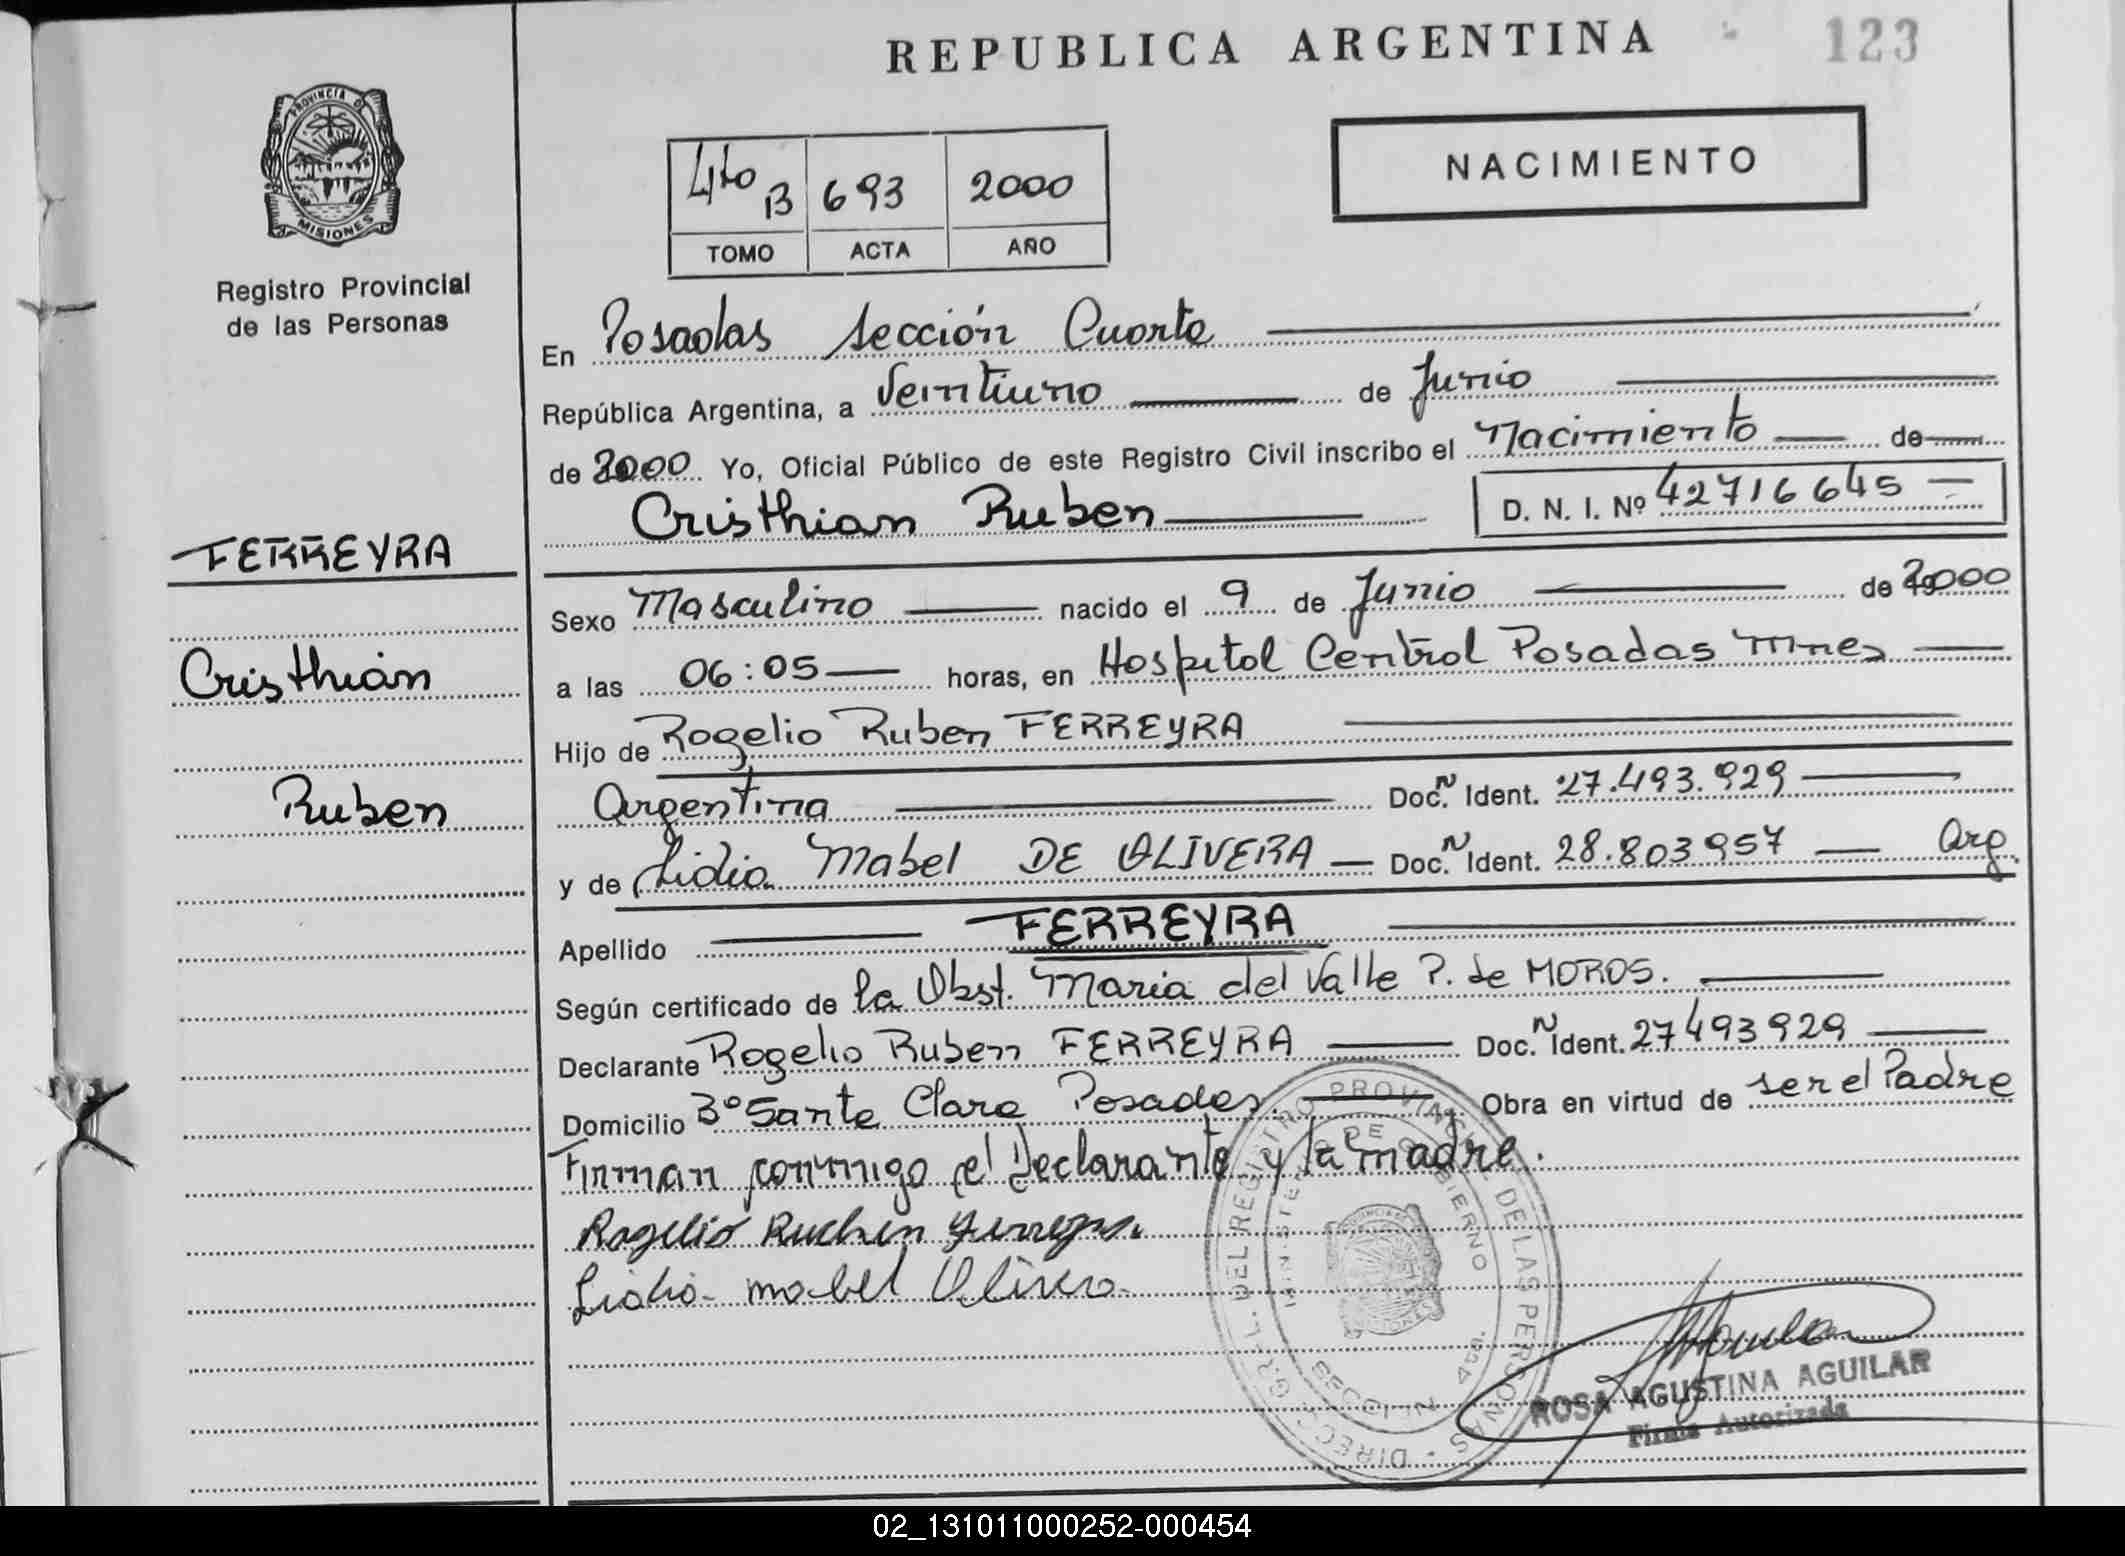 REPUBLICA ARGENTINA
123
PROVINCIA DE
MISIONES
Registro Provincial
de las Personas
4to B 693 2000
TOMO ACTA AÑO
NACIMIENTO
En Posadas Sección Cuarta
República Argentina, a Veintiuno de Junio
de 2000 Yo, Oficial Público de este Registro Civil inscribo el Nacimiento de
Cristhian Ruben D. N. I. Nº 42716645
FERREYRA
Cristhian
Ruben
Sexo Masculino nacido el 9 de Junio de 2000
a las 06:05 horas, en Hospital Central Posadas Mnes
Hijo de Rogelio Ruben FERREYRA
Argentina Doc. N Ident. 27.493.929
y de Lidia Mabel DE OLIVERA Doc. N Ident. 28.803957 Arg.
Apellido FERREYRA
Según certificado de la Obst. Maria del Valle P. de MOROS.
Declarante Rogelio Ruben FERREYRA Doc. N Ident. 27493929
Domicilio Bº Santa Clara Posadas. Obra en virtud de ser el Padre
Firman conmigo el Declarante y la madre.
Rogelio Ruben Ferreyra
Lidia mabel Olivera
DIRECC. GRL. DEL REGISTRO PROVINCIAL DE LAS PERSONAS
MINISTERIO DE GOBIERNO
SECCION 4ta.
ROSA AGUSTINA AGUILAR
Firma Autorizada
02_131011000252-000454